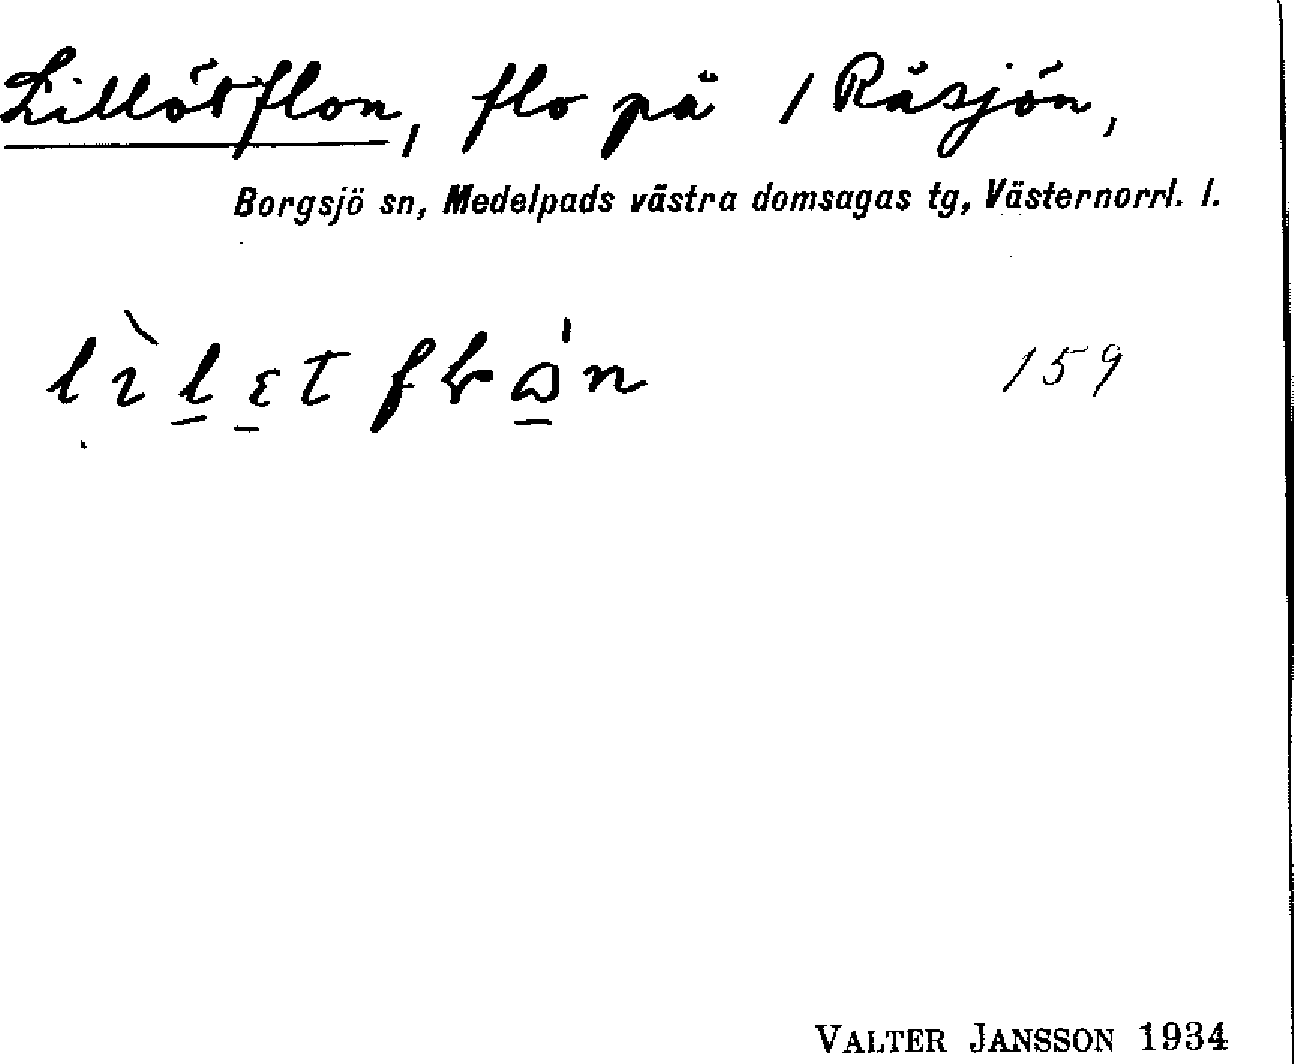 Lillötflon, flo på 1 Råsjön,
Borgsjö sn, Medelpads västra domsagas tg, Västernorrl. l.
159
VALTER JANSSON 1934